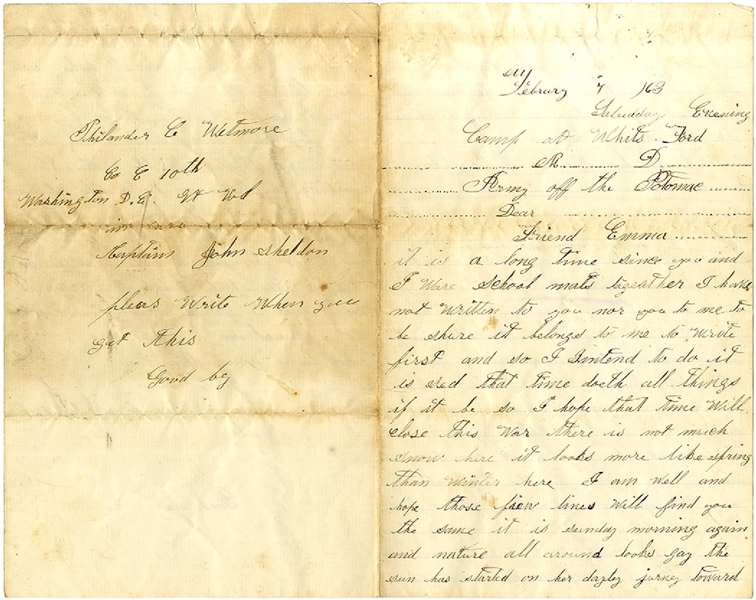 Philander C Wetmore
Co E 10th
Washington D.C. Vt Vol
in care
Captin John Sheldon
pleas Write When you
get this
Good by
ay
Februry 7 /63
Saturday Evening
Camp at Whits Ford
M D
Army off the Potomac
Dear
Friend Emma
it is a long time since you and
I Ware School mats togeather I have
not Written to you nor you to me to
be shure it belongs to me to Write
first and so I Iintend to do it
is sed that time doeth all things
if it be so I hope that time Will
close this War there is not much
snow here it looks more like spring
than Winter here I am well and
hope those few lines Will find you
the same it is sunday morning again
and nature all around looks gay the
sun has started on her dayley jurney toward